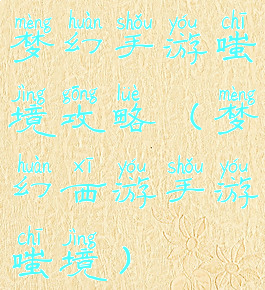 mèng huàn shǒu yóu chī
梦幻手游嗤
jìng gōng luè mèng
境攻略（梦
huàn xī yóu shǒu yóu
幻西游手游
chī jìng
嗤境）